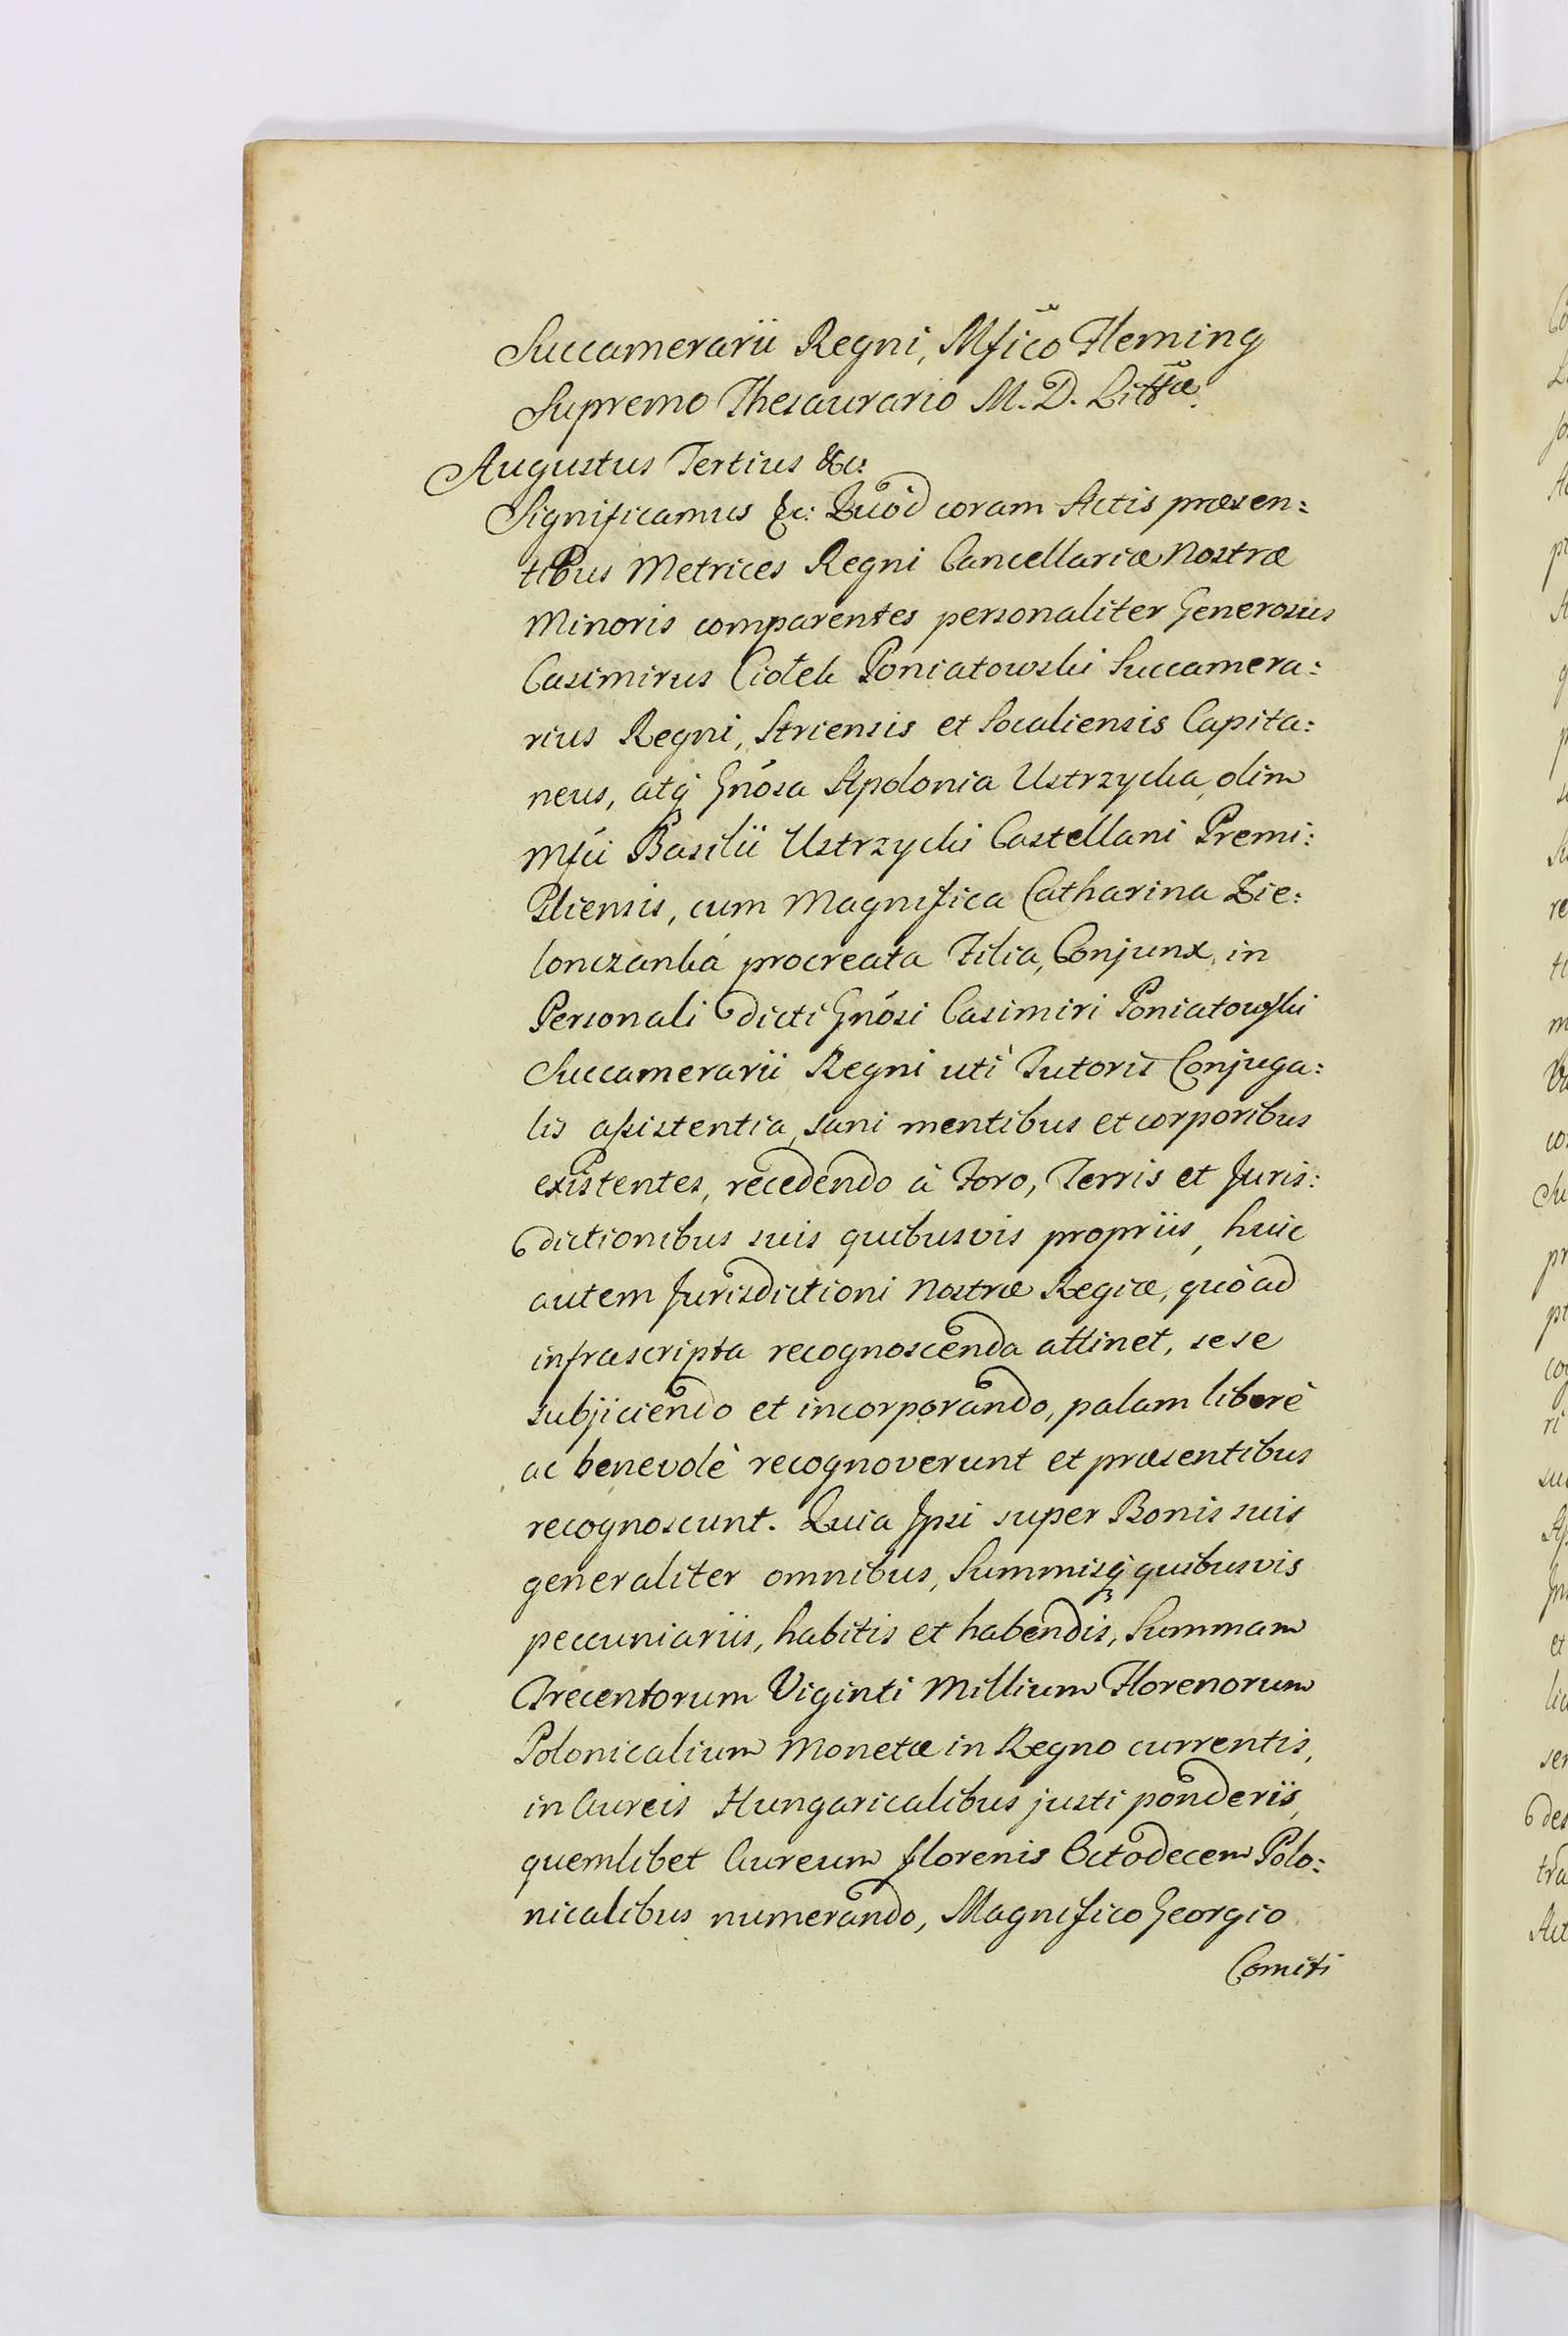 Succamerarii Regni, Mfico Fleming
Supremo Thesaurario M. D. Littæ.
Augustus Tertius &c:
Significamus &c: Quod coram Actis præsen:
tibus Metrices Regni Cancellariæ Nostræ
Minoris comparentes personaliter Generosus
Casimirus Ciołek Poniatowski Succamera:
rius Regni, Striensis et Socaliensis Capita:
neus, atq Gnósa Apolonia Ustrzycka, olim
Mfci Basilii Ustrzycki Castellani Premi:
sliensis, cum Magnifica Catharina Zie:
lonczanká procreata Filia, Conjunx, in
Personali dicti Gnósi Casimiri Poniatowski
Succamerarii Regni uti Tutoris Conjuga:
lis assistentia, sani mentibus et corporibus
existentes, recedendo à Foro, Terris et Juris:
dictionibus suis quibusvis propriis, huic
autem Jurisdictioni Nostræ Regiæ, quò ad
infrascripta recognoscenda attinet, sese
subjiciendo et incorporando, palam liberè
ac benevolè recognoverunt et præsentibus
recognoscunt. Quia Ipsi super Bonis suis
generaliter omnibus, Summisq quibusvis
pecuniariis, habitis et habendis, Summam
Trecentorum Viginti Millium Florenorum
Polonicalium Monetæ in Regno currentis,
in Aureis Hungaricalibus justi ponderis,
quemlibet Aureum florenis Octodecem Polo:
nicalibus numerando, Magnifico Georgio
Comiti